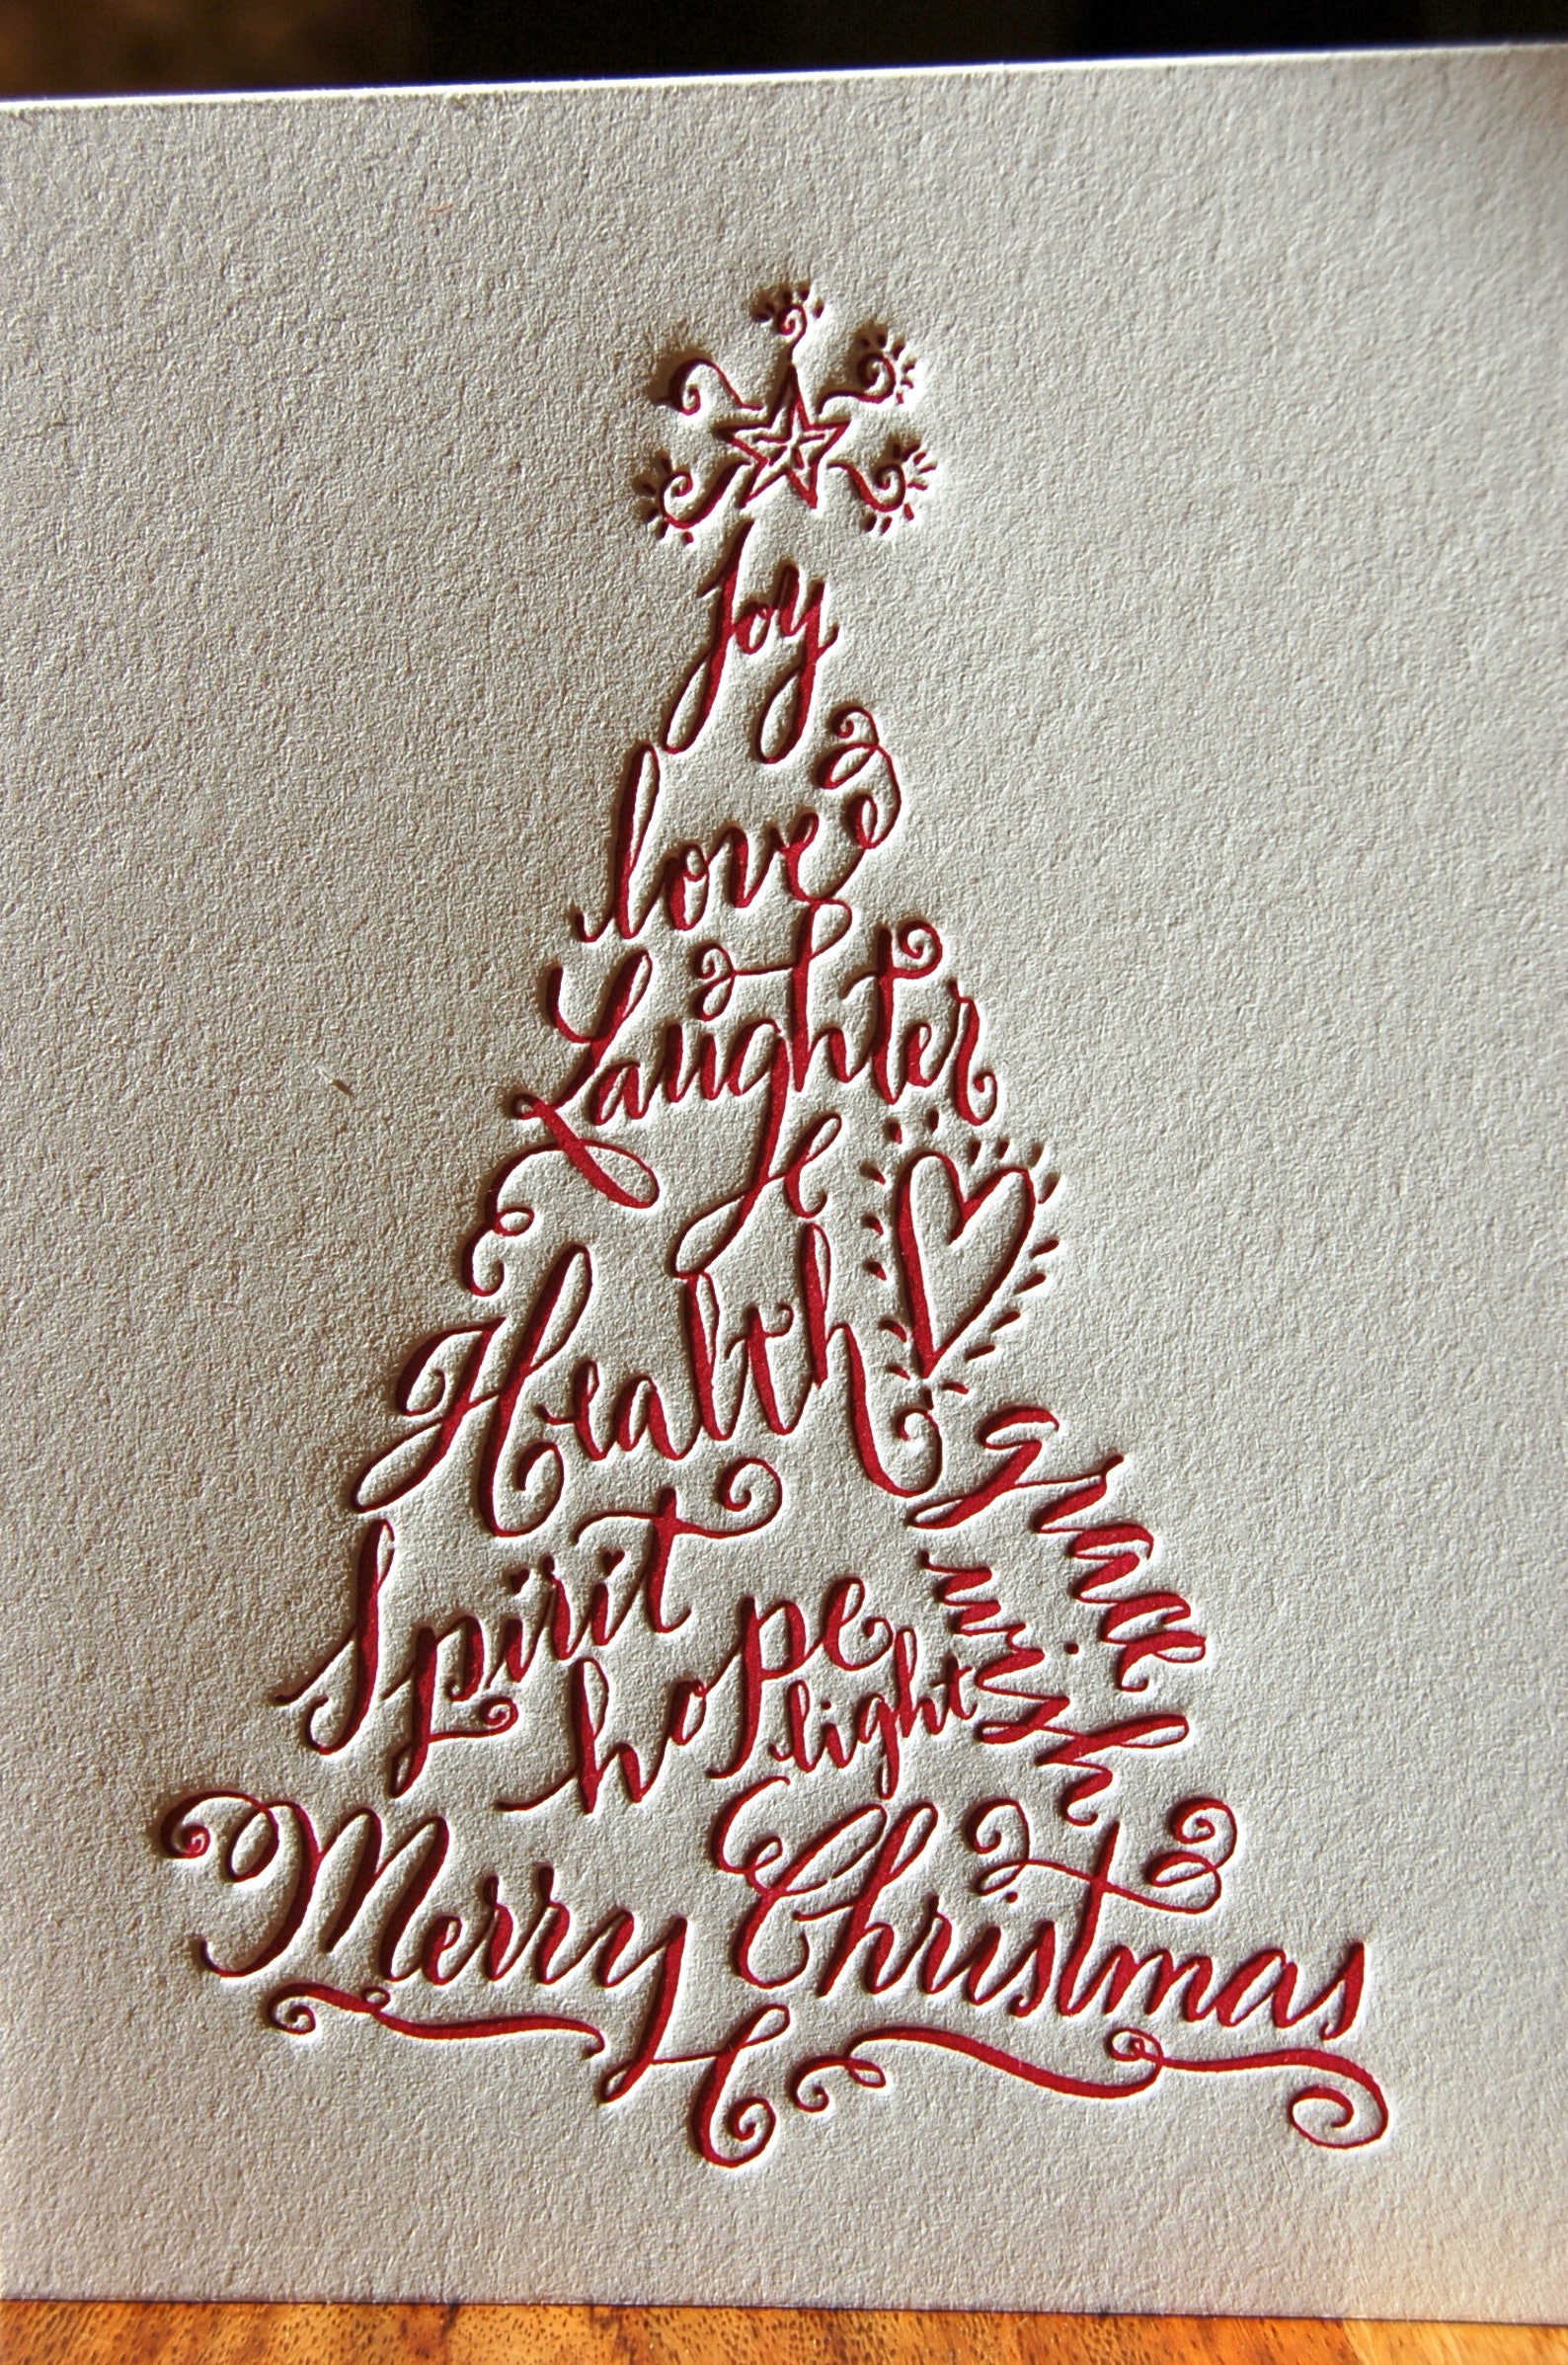 Joy
love
Laughter
Health
Spirit
hope
light
wish
Merry Christmas